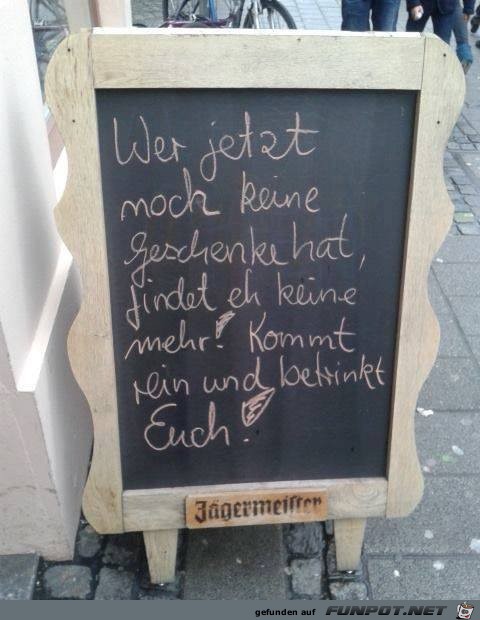 Wer jetzt
noch keine
Geschenke hat,
findet eh keine
mehr! Kommt
rein und betrinkt
Euch!
Jägermeister
gefunden auf FUNPOT.NET